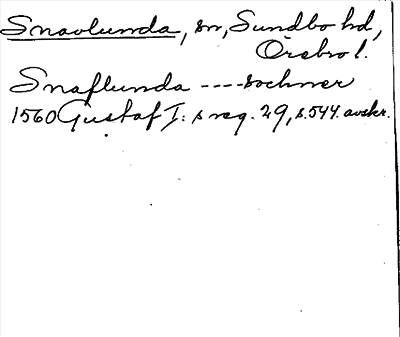 Snavlunda, sn, Sundbo hd,
Örebro l.
Snaflunda ---- sochner
1560 Gustaf I: s reg. 29, s. 544. avskr.